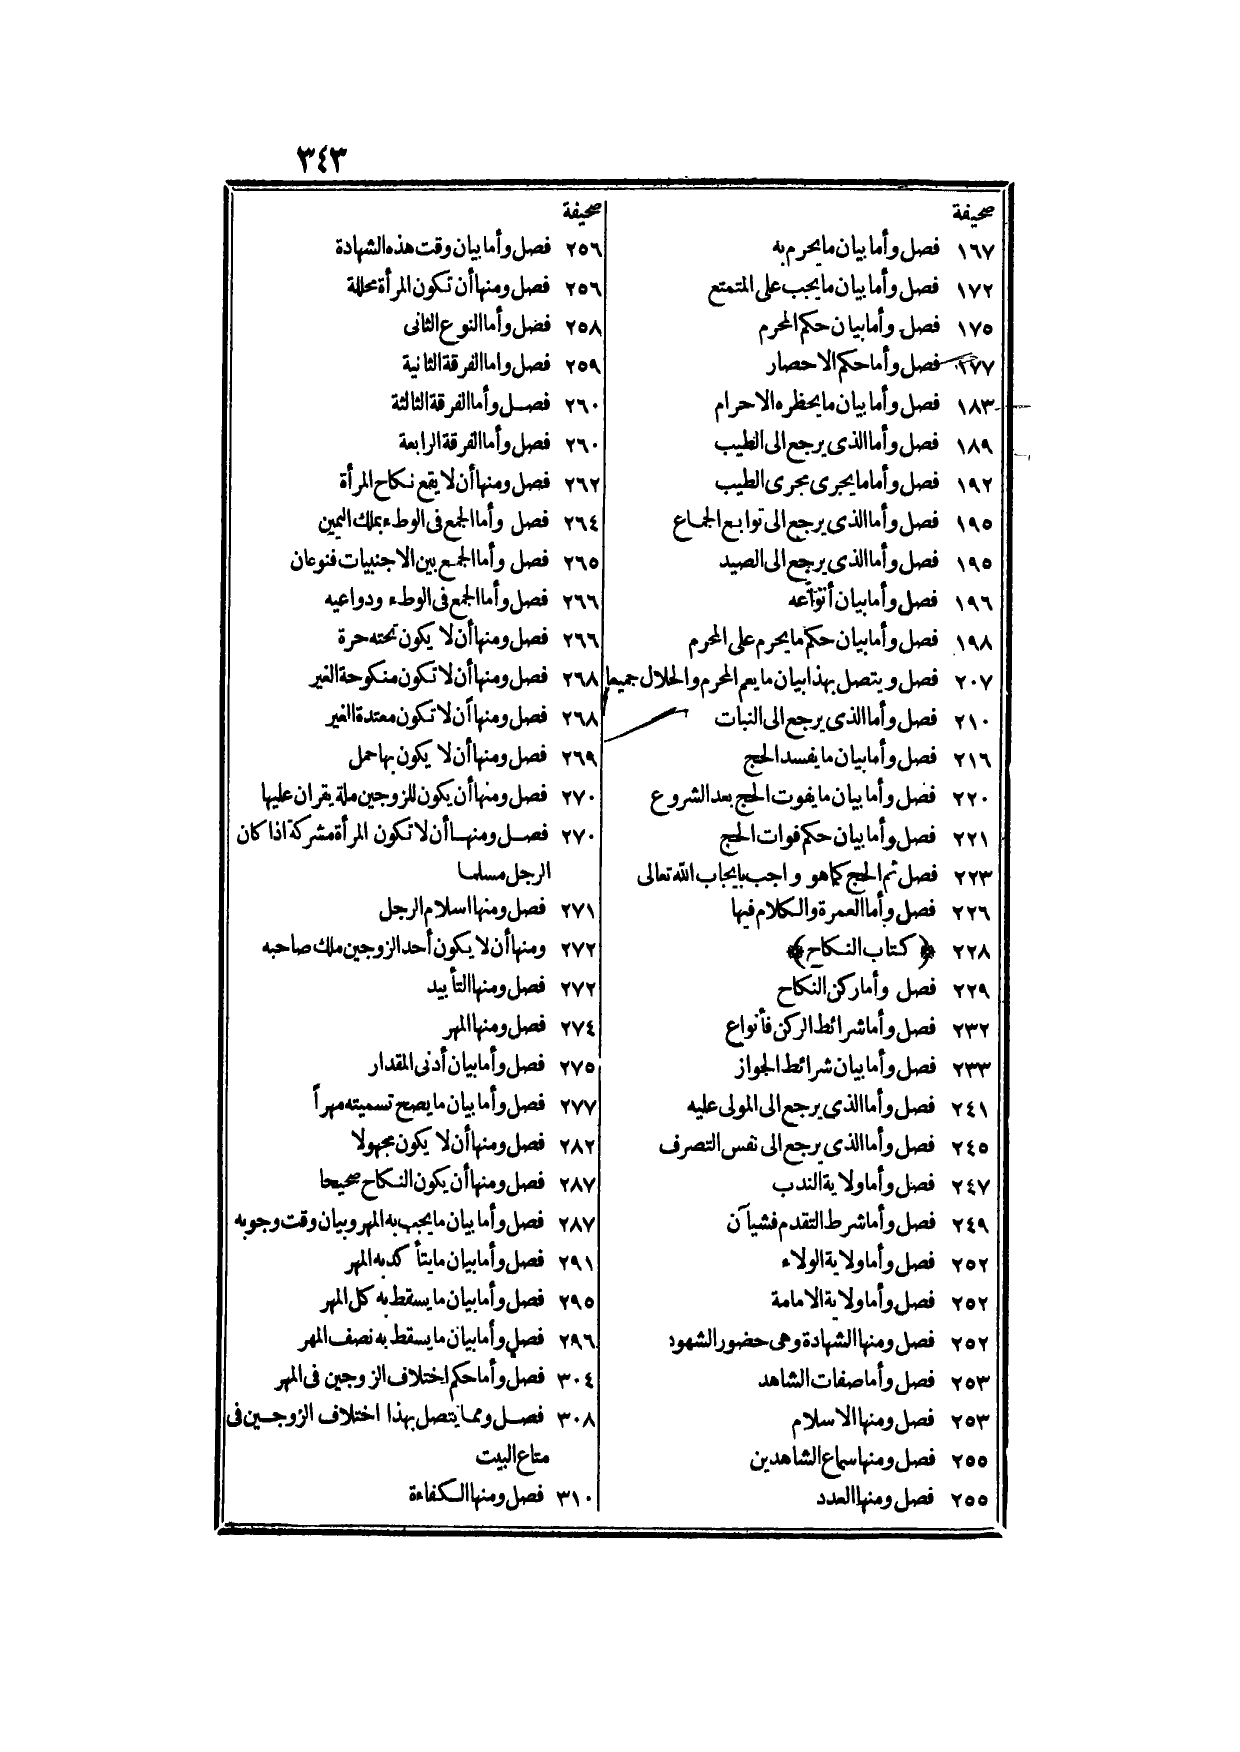 ٣٤٣
صحيفة
١٦٧ فصل وأما بيان ما يحرم به
١٧٢ فصل وأما بيان ما يجب على المتمتع
١٧٥ فصل وأما بيان حكم المحرم
٢٧٧ فصل وأما حكم الاحصار
١٨٣ فصل وأما بيان ما يحظره الاحرام
١٨٩ فصل وأما الذى يرجع الى الطيب
١٩٢ فصل وأما ما يجرى مجرى الطيب
١٩٥ فصل وأما الذى يرجع الى توابع الجماع
١٩٥ فصل وأما الذى يرجع الى الصيد
١٩٦ فصل وأما بيان أنواعه
١٩٨ فصل وأما بيان حكم ما يحرم على المحرم
٢٠٧ فصل ويتصل بهذا بيان ما يعم المحرم والحلال جميعا
٢١٠ فصل وأما الذى يرجع الى النبات
٢١٦ فصل وأما بيان ما يفسد الحج
٢٢٠ فصل وأما بيان ما يفوت الحج بعد الشروع
٢٢١ فصل وأما بيان حكم فوات الحج
٢٢٣ فصل ثم الحج كما هو واجب بايجاب الله تعالى
٢٢٦ فصل وأما العمرة والكلام فيها
٢٢٨ ﴿ كتاب النكاح ﴾
٢٢٩ فصل وأما ركن النكاح
٢٣٢ فصل وأما شرائط الركن فأنواع
٢٣٣ فصل وأما بيان شرائط الجواز
٢٤١ فصل وأما الذى يرجع الى المولى عليه
٢٤٥ فصل وأما الذى يرجع الى نفس التصرف
٢٤٧ فصل وأما ولاية الندب
٢٤٩ فصل وأما شرط التقدم فشيآن
٢٥٢ فصل وأما ولاية الولاء
٢٥٢ فصل وأما ولاية الامامة
٢٥٢ فصل ومنها الشهادة وهى حضور الشهود
٢٥٣ فصل وأما صفات الشاهد
٢٥٣ فصل ومنها الاسلام
٢٥٥ فصل ومنها سماع الشاهدين
٢٥٥ فصل ومنها العدد
صحيفة
٢٥٦ فصل وأما بيان وقت هذه الشهادة
٢٥٦ فصل ومنها أن تكون المرأة محللة
٢٥٨ فصل وأما النوع الثانى
٢٥٩ فصل واما الفرقة الثانية
٢٦٠ فصل وأما الفرقة الثالثة
٢٦٠ فصل وأما الفرقة الرابعة
٢٦٢ فصل ومنها أن لا يقع نكاح المرأة
٢٦٤ فصل وأما الجمع فى الوطء بملك اليمين
٢٦٥ فصل وأما الجمع بين الاجنبيات فنوعان
٢٦٦ فصل وأما الجمع فى الوطء ودواعيه
٢٦٦ فصل ومنها أن لا يكون تحته حرة
٢٦٨ فصل ومنها أن لا تكون منكوحة الغير
٢٦٨ فصل ومنها أن لا تكون معتدة الغير
٢٦٩ فصل ومنها أن لا يكون بها حمل
٢٧٠ فصل ومنها أن يكون للزوجين ملة يقران عليها
٢٧٠ فصل ومنها أن لا تكون المرأة مشركة اذا كان
الرجل مسلما
٢٧١ فصل ومنها اسلام الرجل
٢٧٢ ومنها أن لا يكون أحد الزوجين ملك صاحبه
٢٧٢ فصل ومنها التأبيد
٢٧٤ فصل ومنها المهر
٢٧٥ فصل وأما بيان أدنى المقدار
٢٧٧ فصل وأما بيان ما يصح تسميته مهراً
٢٨٢ فصل ومنها أن لا يكون مجهولا
٢٨٧ فصل ومنها أن يكون النكاح صحيحا
٢٨٧ فصل وأما بيان ما يجب به المهر وبيان وقت وجوبه
٢٩١ فصل وأما بيان ما يتأكد به المهر
٢٩٥ فصل وأما بيان ما يسقط به كل المهر
٢٩٦ فصل وأما بيان ما يسقط به نصف المهر
٣٠٤ فصل وأما حكم اختلاف الزوجين فى المهر
٣٠٨ فصل ومما يتصل بهذا اختلاف الزوجين فى
متاع البيت
٣١٠ فصل ومنها الكفاءة